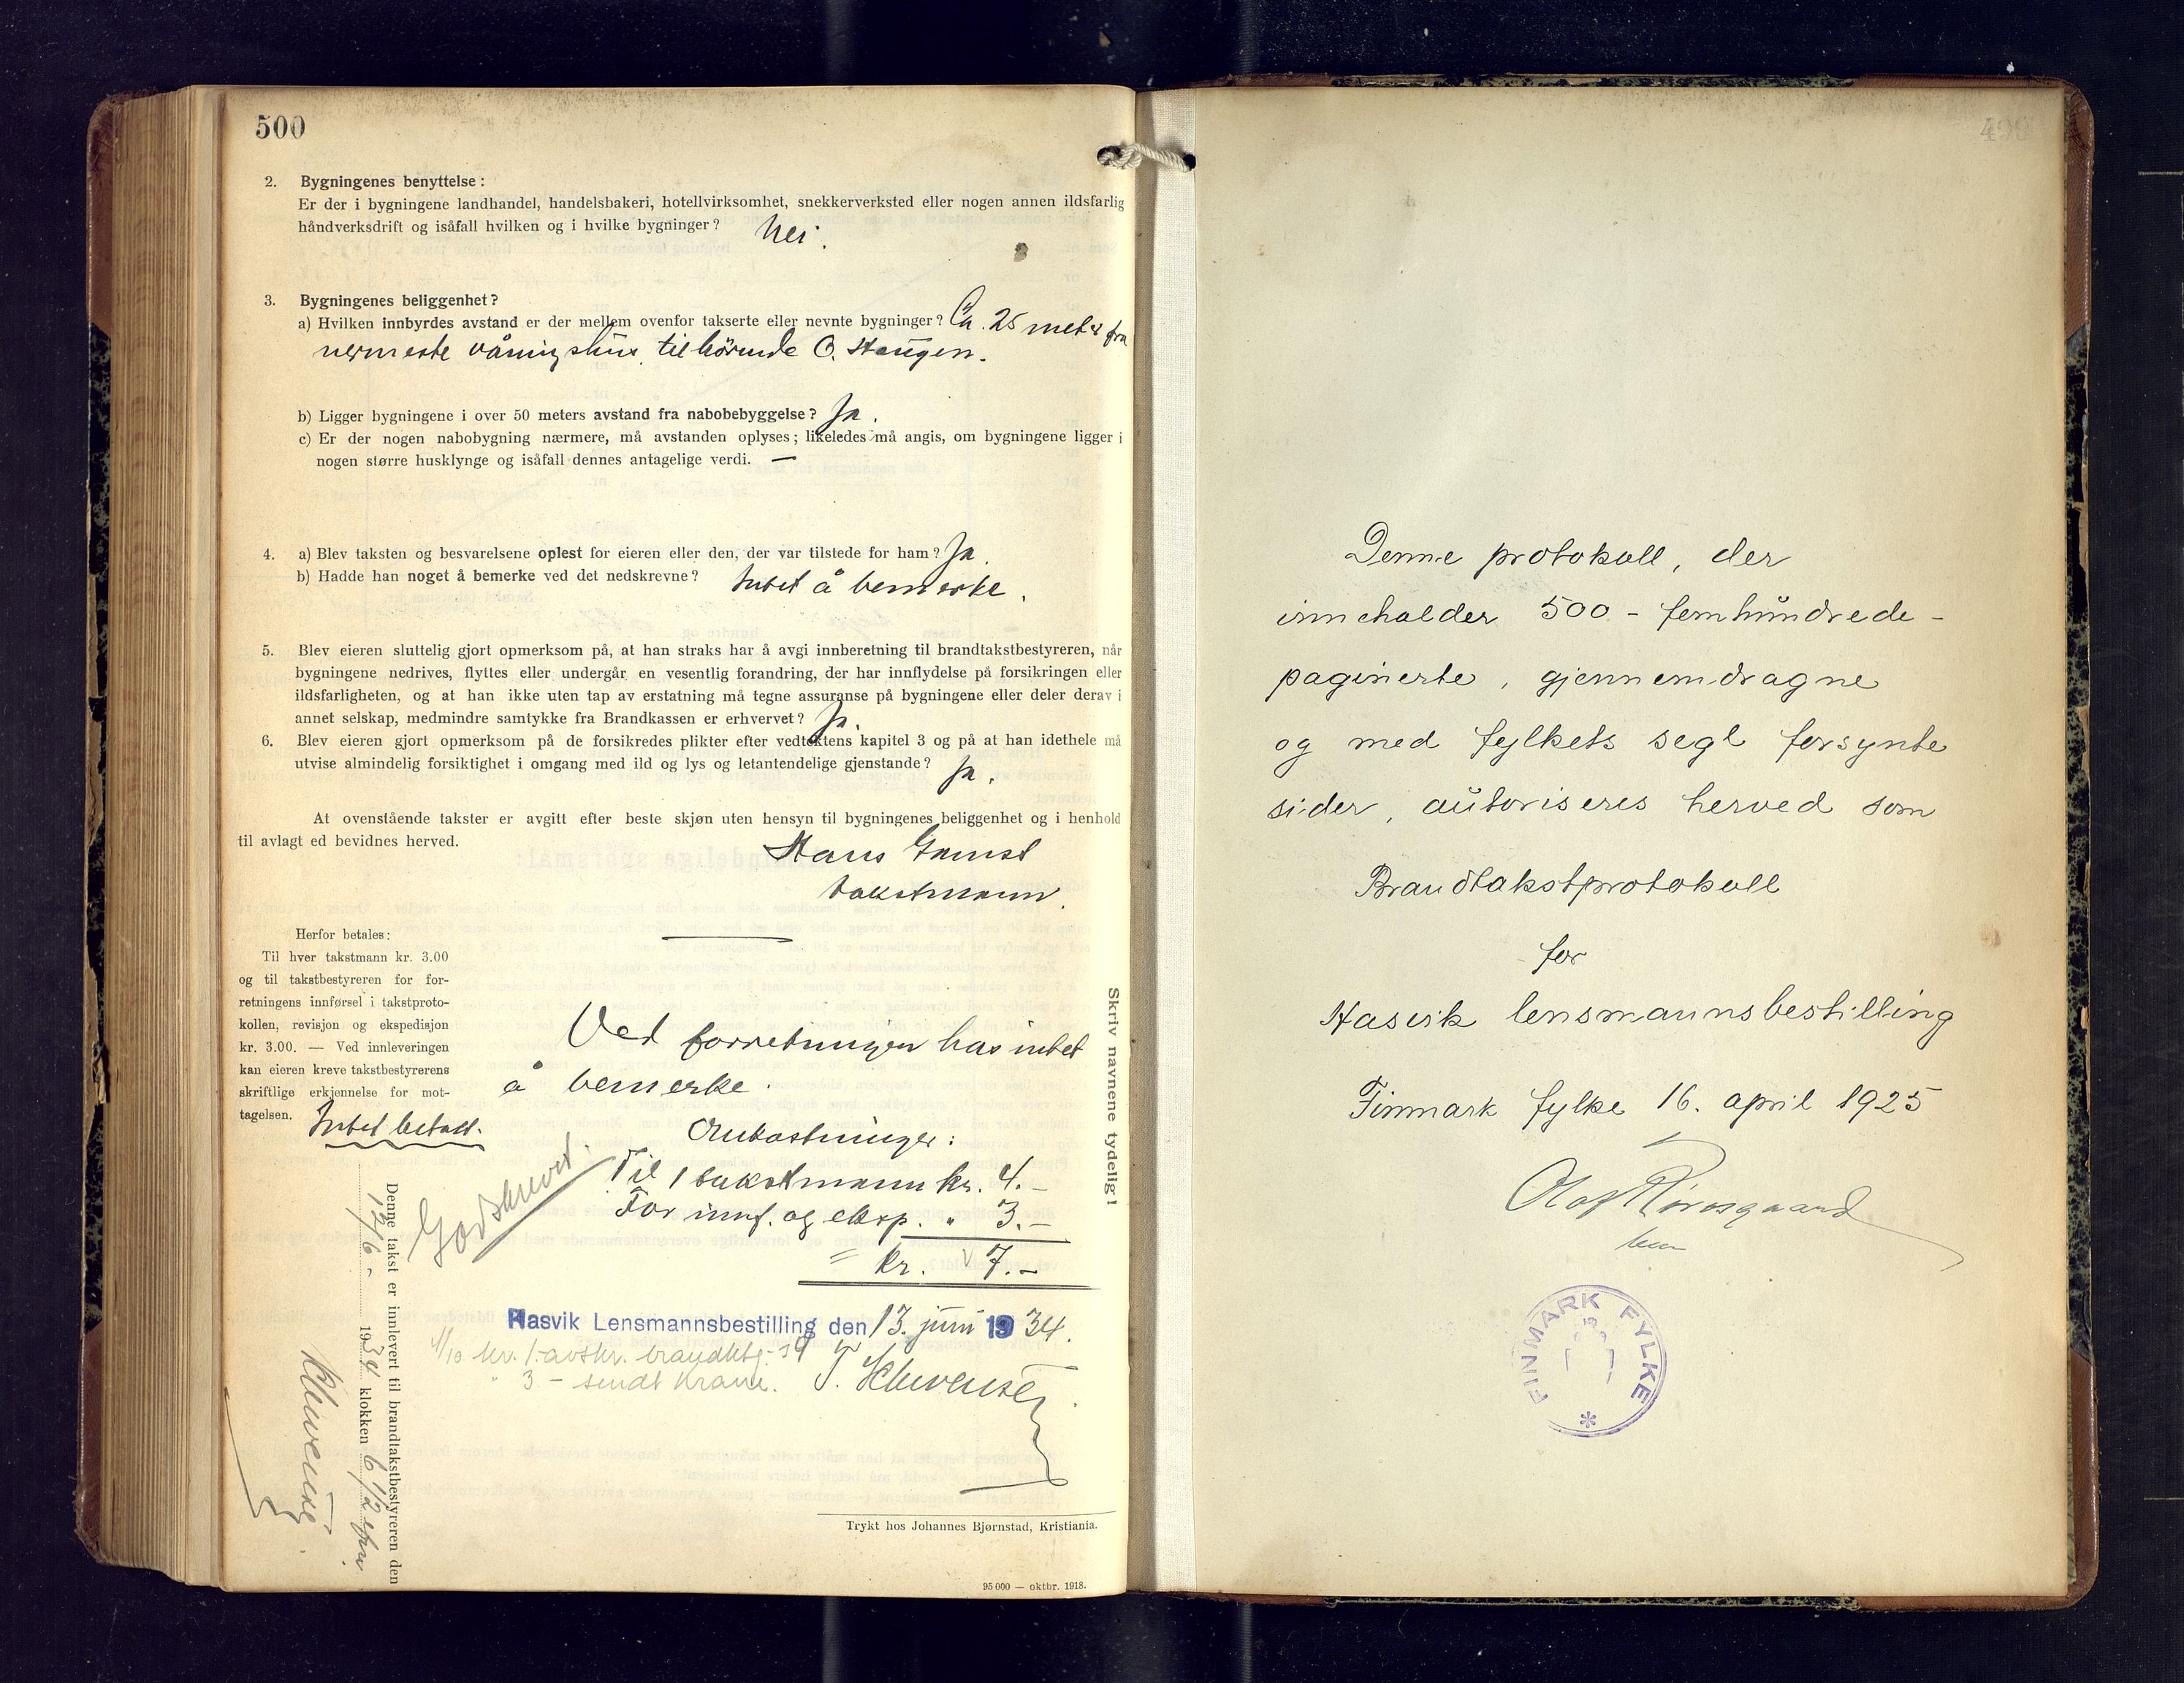 500
2. Bygningenes benyttelse:
Er der i bygningene landhandel, handelsbakeri, hotellvirksomhet, snekkerverksted eller nogen annen ildsfarlig
håndverksdrift og isåfall hvilken og i hvilke bygninger? Nei.
3. Bygningenes beliggenhet?
a) Hvilken innbyrdes avstand er der mellem ovenfor takserte eller nevnte bygninger? Ca. 25 meter fra
nermeste våningshus, tilhörende O. Haugen.
b) Ligger bygningene i over 50 meters avstand fra nabobebyggelse? Ja.
c) Er der nogen nabobygning nærmere, må avstanden oplyses; likeledes må angis, om bygningene ligger i
nogen større husklynge og isåfall dennes antagelige verdi. —
4. a) Blev taksten og besvarelsene oplest for eieren eller den, der var tilstede for ham? Ja.
b) Hadde han noget å bemerke ved det nedskrevne? Intet å bemerke.
5. Blev eieren sluttelig gjort opmerksom på, at han straks har å avgi innberetning til brandtakstbestyreren, når
bygningene nedrives, flyttes eller undergår en vesentlig forandring, der har innflydelse på forsikringen eller
ildsfarligheten, og at han ikke uten tap av erstatning må tegne assuranse på bygningene eller deler derav i
annet selskap, medmindre samtykke fra Brandkassen er erhvervet? Ja.
6. Blev eieren gjort opmerksom på de forsikredes plikter efter vedtektens kapitel 3 og på at han idethele må
utvise almindelig forsiktighet i omgang med ild og lys og letantendelige gjenstande? Ja.
At ovenstående takster er avgitt efter beste skjøn uten hensyn til bygningenes beliggenhet og i henhold
til avlagt ed bevidnes herved.
Hans Gamst
takstmann.
Herfor betales:
Til hver takstmann kr. 3.00
og til takstbestyreren for for-
retningens innførsel i takstproto-
kollen, revisjon og ekspedisjon
kr. 3.00. — Ved innleveringen
kan eieren kreve takstbestyrerens
skriftlige erkjennelse for mot-
tagelsen.
Intet betalt.
Ved forretningen has intet
å bemerke.
Omkostninger:
Til 1 takstmann kr. 4.-
For innf. og eksp. " 3.-
= kr. 7.-
Godskrevet.
Hasvik Lensmannsbestilling den 13. juni 1934.
1/10 kr. 1.- avskr. brandktg.
" 3 - sendt
Denne takst er innlevert til brandtakstbestyreren den
12/6 - 1934 klokken 6 1/2 efm.
Skriv navnene tydelig!
Trykt hos Johannes Bjørnstad, Kristiania.
95 000 — oktbr. 1918.
Denne protokoll, der
inneholder 500 - femhundrede -
paginerte, gjennemdragne
og med fylkets segl forsynte
sider, autoriseres herved som
Brandtakstprotokoll
for
Hasvik lensmannsbestilling
Finmark fylke 16. april 1925
FINMARK FYLKE